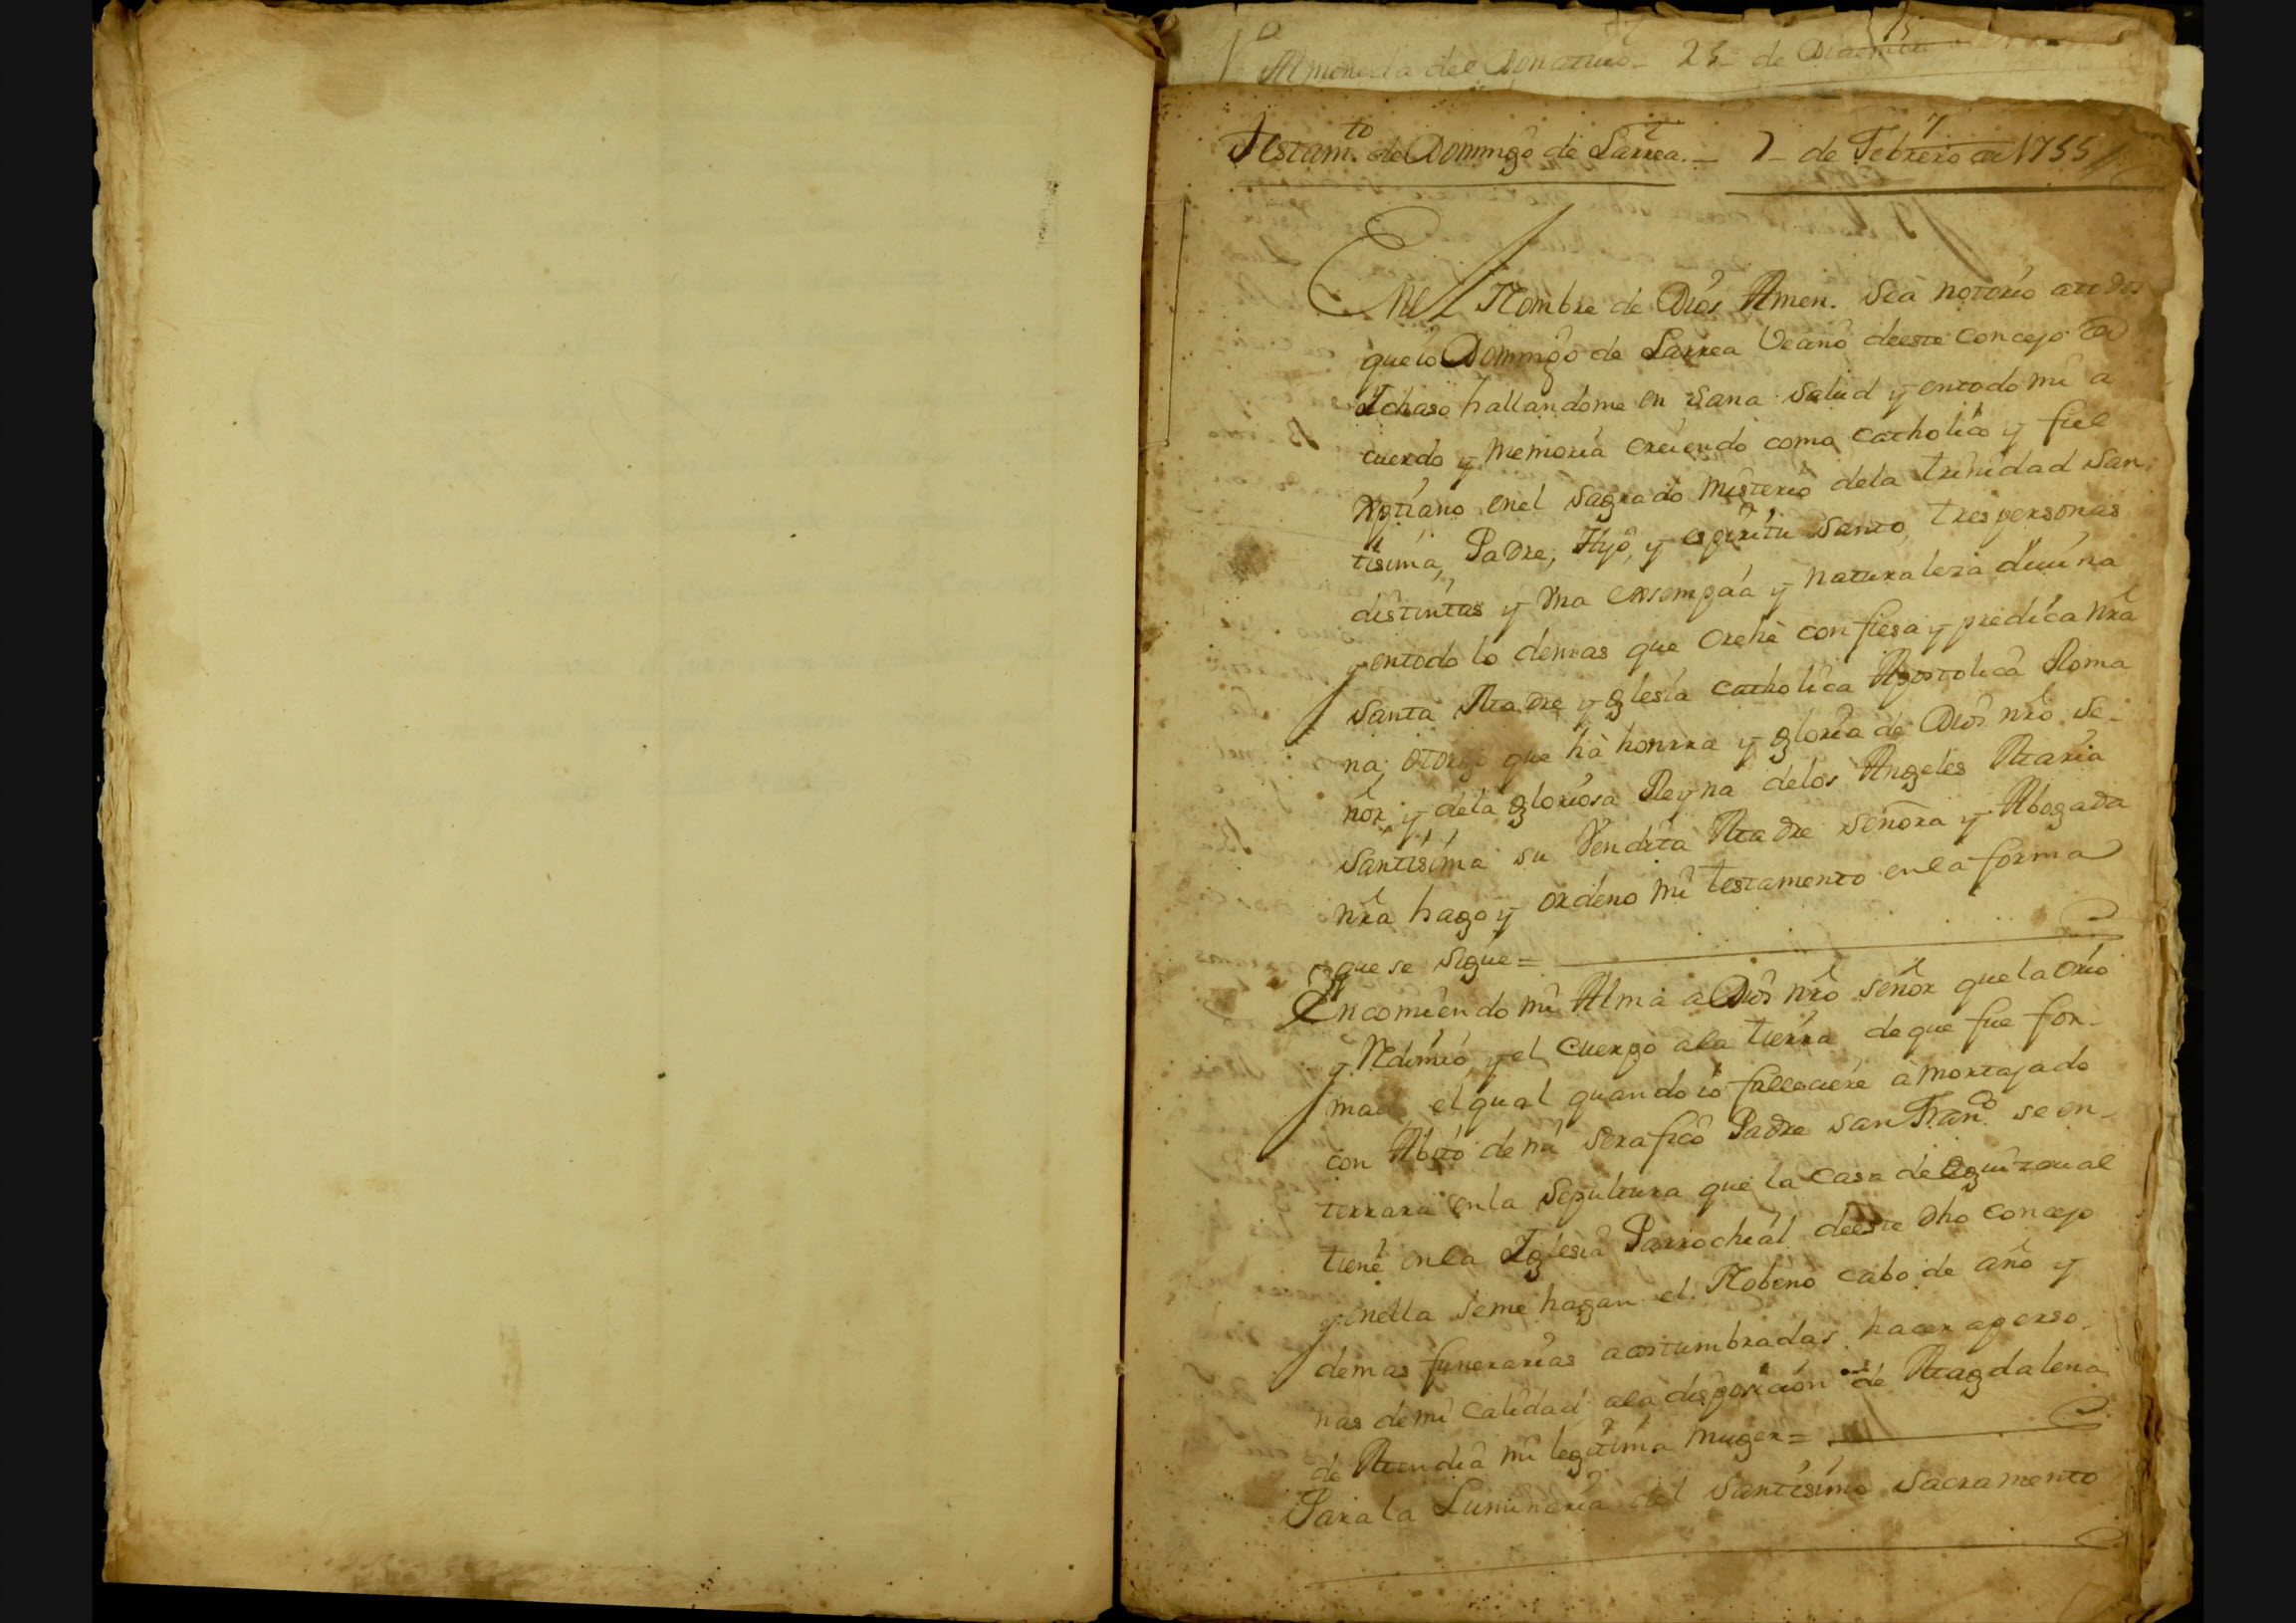 Almoneda del Donativo - 23 - de
Testam.to de Domingo de Larrea. - 7 - de Febrero de 1755
En el Nombre de Dios Amen. Sea notorio a todos
que io Domingo de Larrea Veçino de este Concejo de
Ichaso hallandome en sana salud y en todo mi a
cuerdo y memoria creiendo como catholico y fiel
Xptiano en el sagrado Misterio de la trinidad San
tisima, Padre, Hijo, y espiritu Santo, tres personas
distintas y Vna y naturaleza diuina
y en todo lo demas que crehe confiesa y predica nrã
Santa Madre yglesia catholica Apostolica Roma
na; otorgo que hà honrra y gloria de Dios nrõ Se-
ñor y de la gloriosa Reyna de los Angeles Maria
Santisima su Vendita Madre señora y Abogada
nrã hago y ordeno mi testamento en la forma
que se sigue =
Encomiendo mi Alma a Dios nrõ señor que la crio
y Redimió, y el Cuerpo a la tierra de que fue for-
mado el qual quando io falleciere amortajado
con Abito de mi Serafico Padre san Fran.co se en-
terrara en la sepultura que la Casa de
tiene en la Iglesia Parrochial de este dho Concejo
y en ella se me hagan el Nobeno cabo de año y
demas funerarias acostumbradas hacer a perso-
nas de mi calidad a la disposicion de Magdalena
de Mendia mi legitima Muger =
Para la Luminaria del Santisimo Sacramento